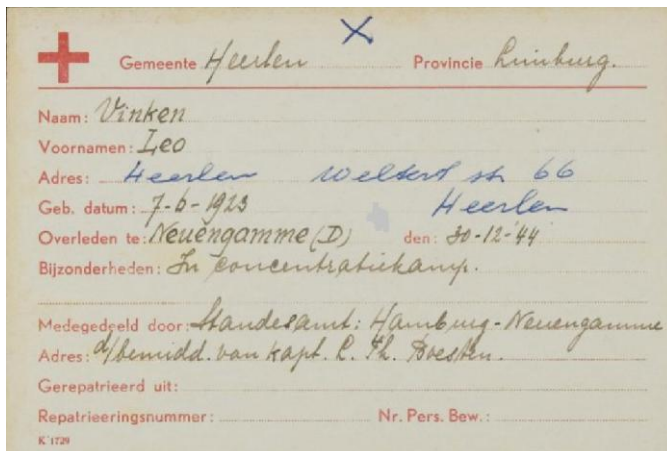 Gemeente Heerlen Provincie Limburg.
Naam: Vinken
Voornamen: Leo
Adres: Heerlen str 66
Geb. datum: 7-6-1923 Heerlen
Overleden te: Neuengamme (D) den: 30-12-'44
Bijzonderheden: In concentratiekamp.
Medegedeeld door: Standesamt: Hamburg-Neuengamme
Adres: d/bemidd. van kapt. L. Th. Doesten.
Gerepatrieerd uit:
Repatrieeringsnummer: Nr. Pers. Bew.:
K 1729